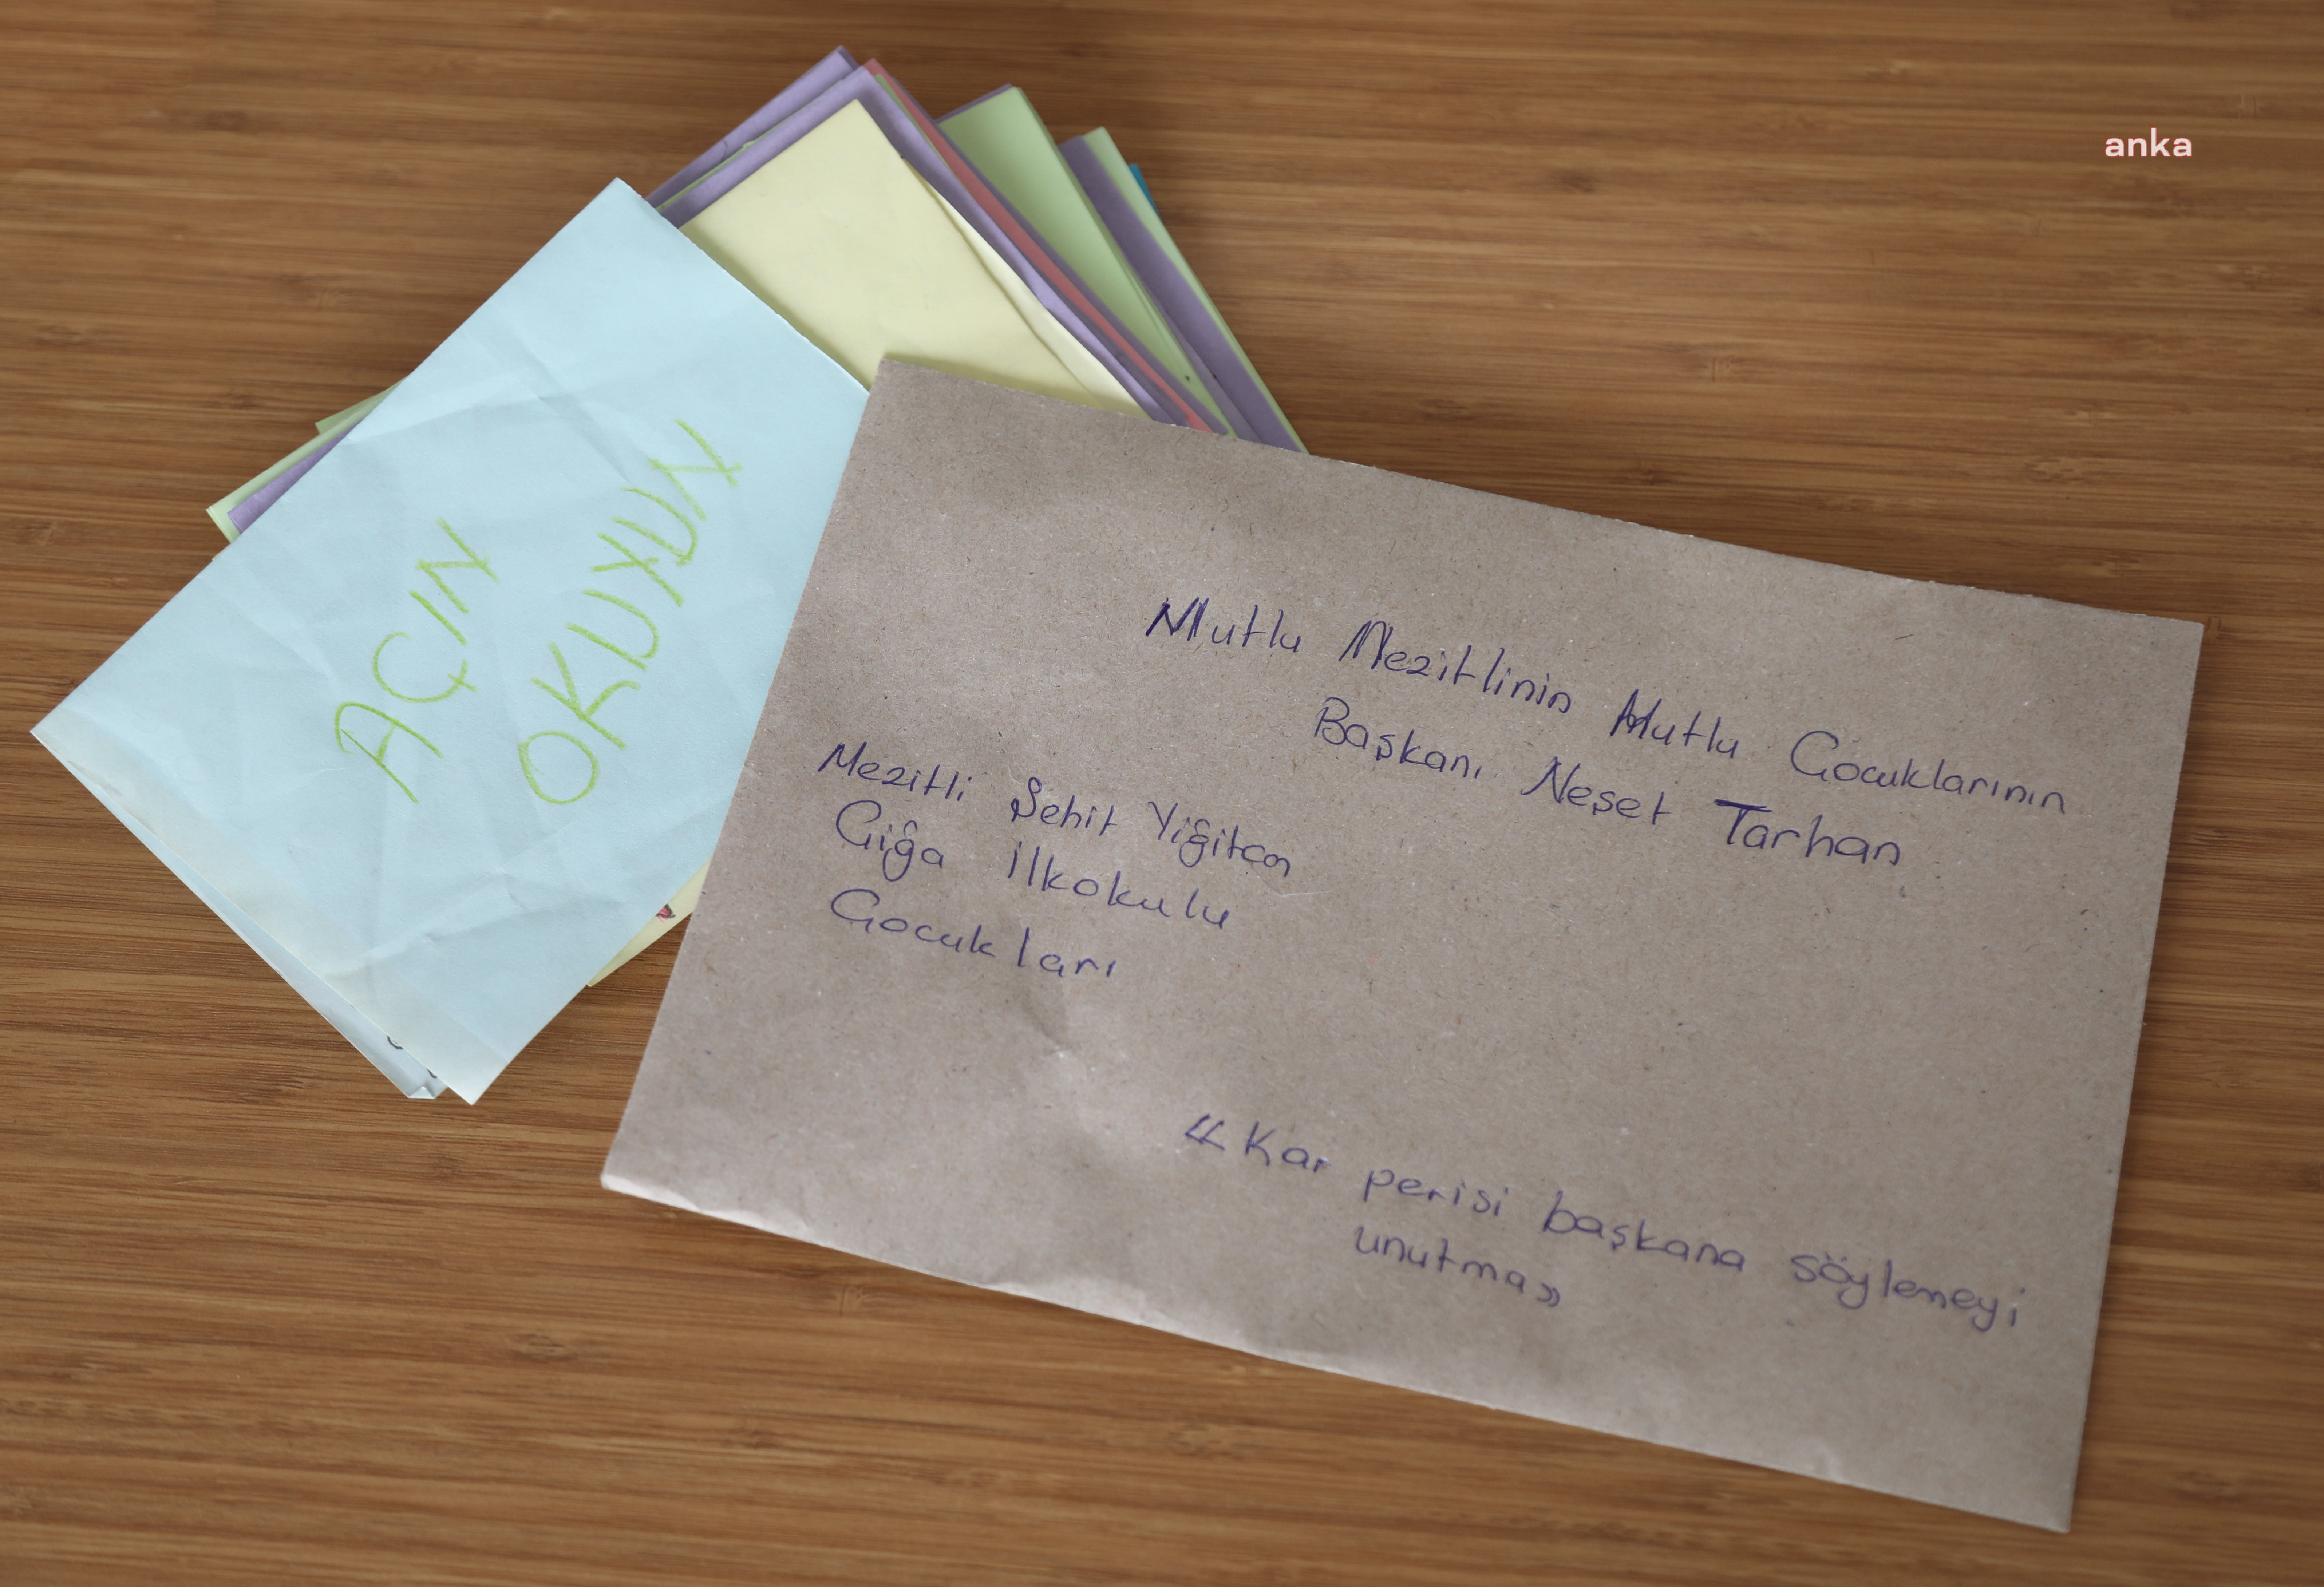 anka
AÇIN
OKUYUN
Mutlu Mezitlinin Mutlu Çocuklarının
Başkanı Neşet Tarhan
Mezitli Şehit Yiğitcan
Çiğa İlkokulu
Çocukları
"Kar perisi başkana söylemeyi
unutma"